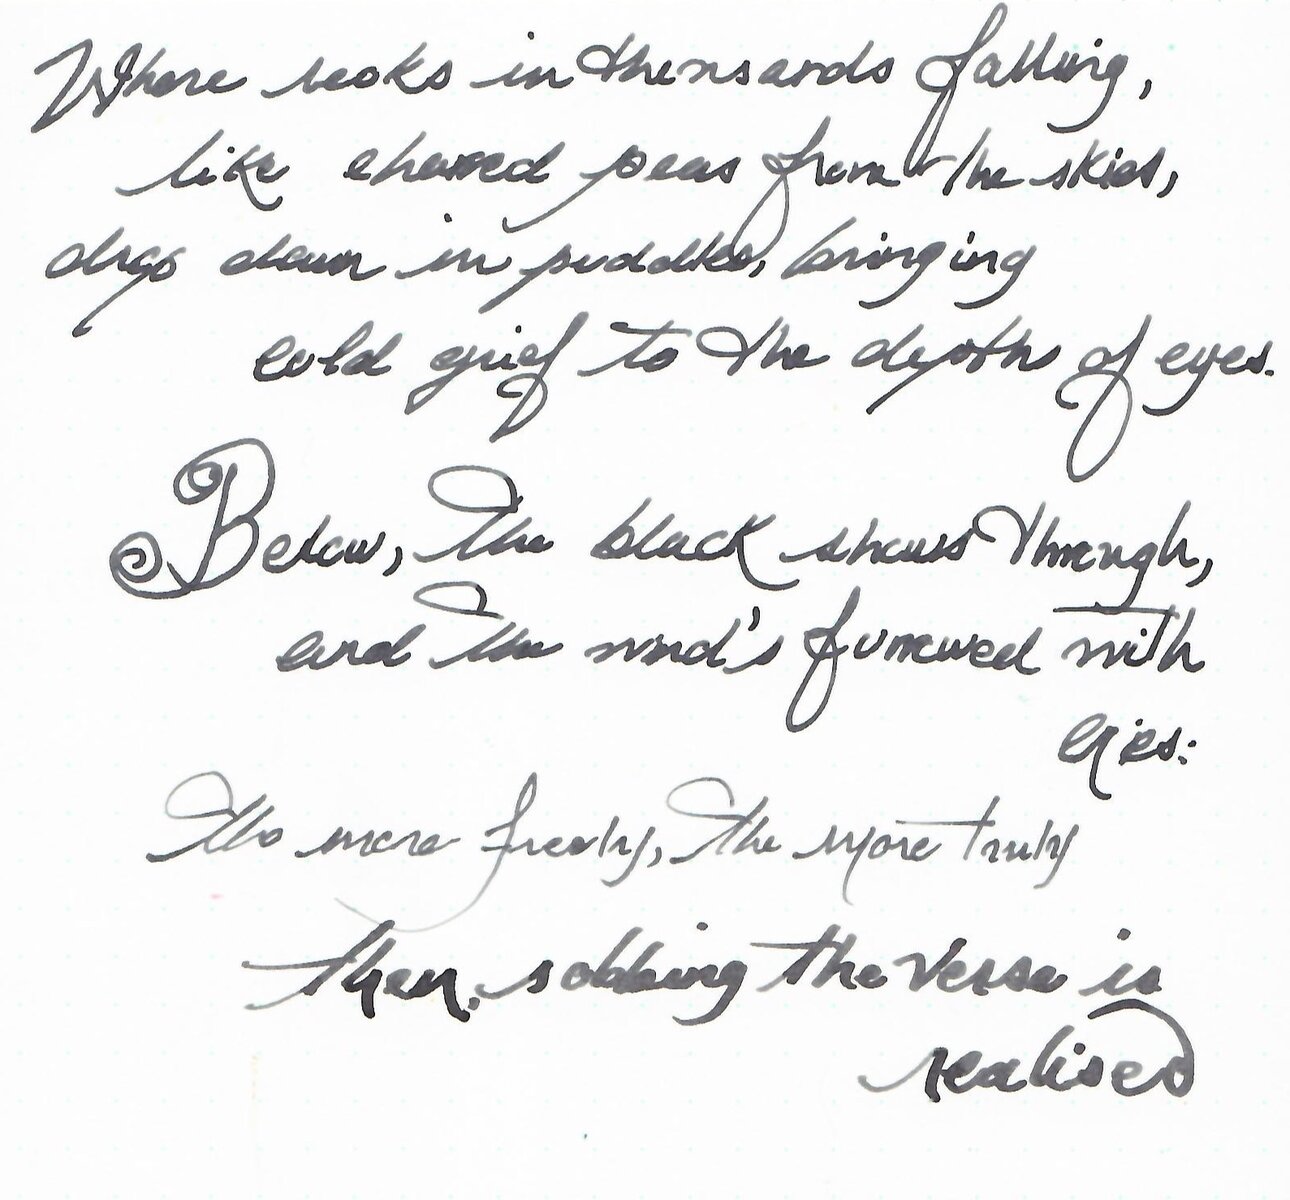 Where rooks in thousands falling,
like charred pears from the skies,
drop down in puddles, bringing
cold grief to the depth of eyes.
Below, the black shows through,
and the wind's furrowed with
cries:
the more freely, the more truly
then, sobbing the verse is
realised